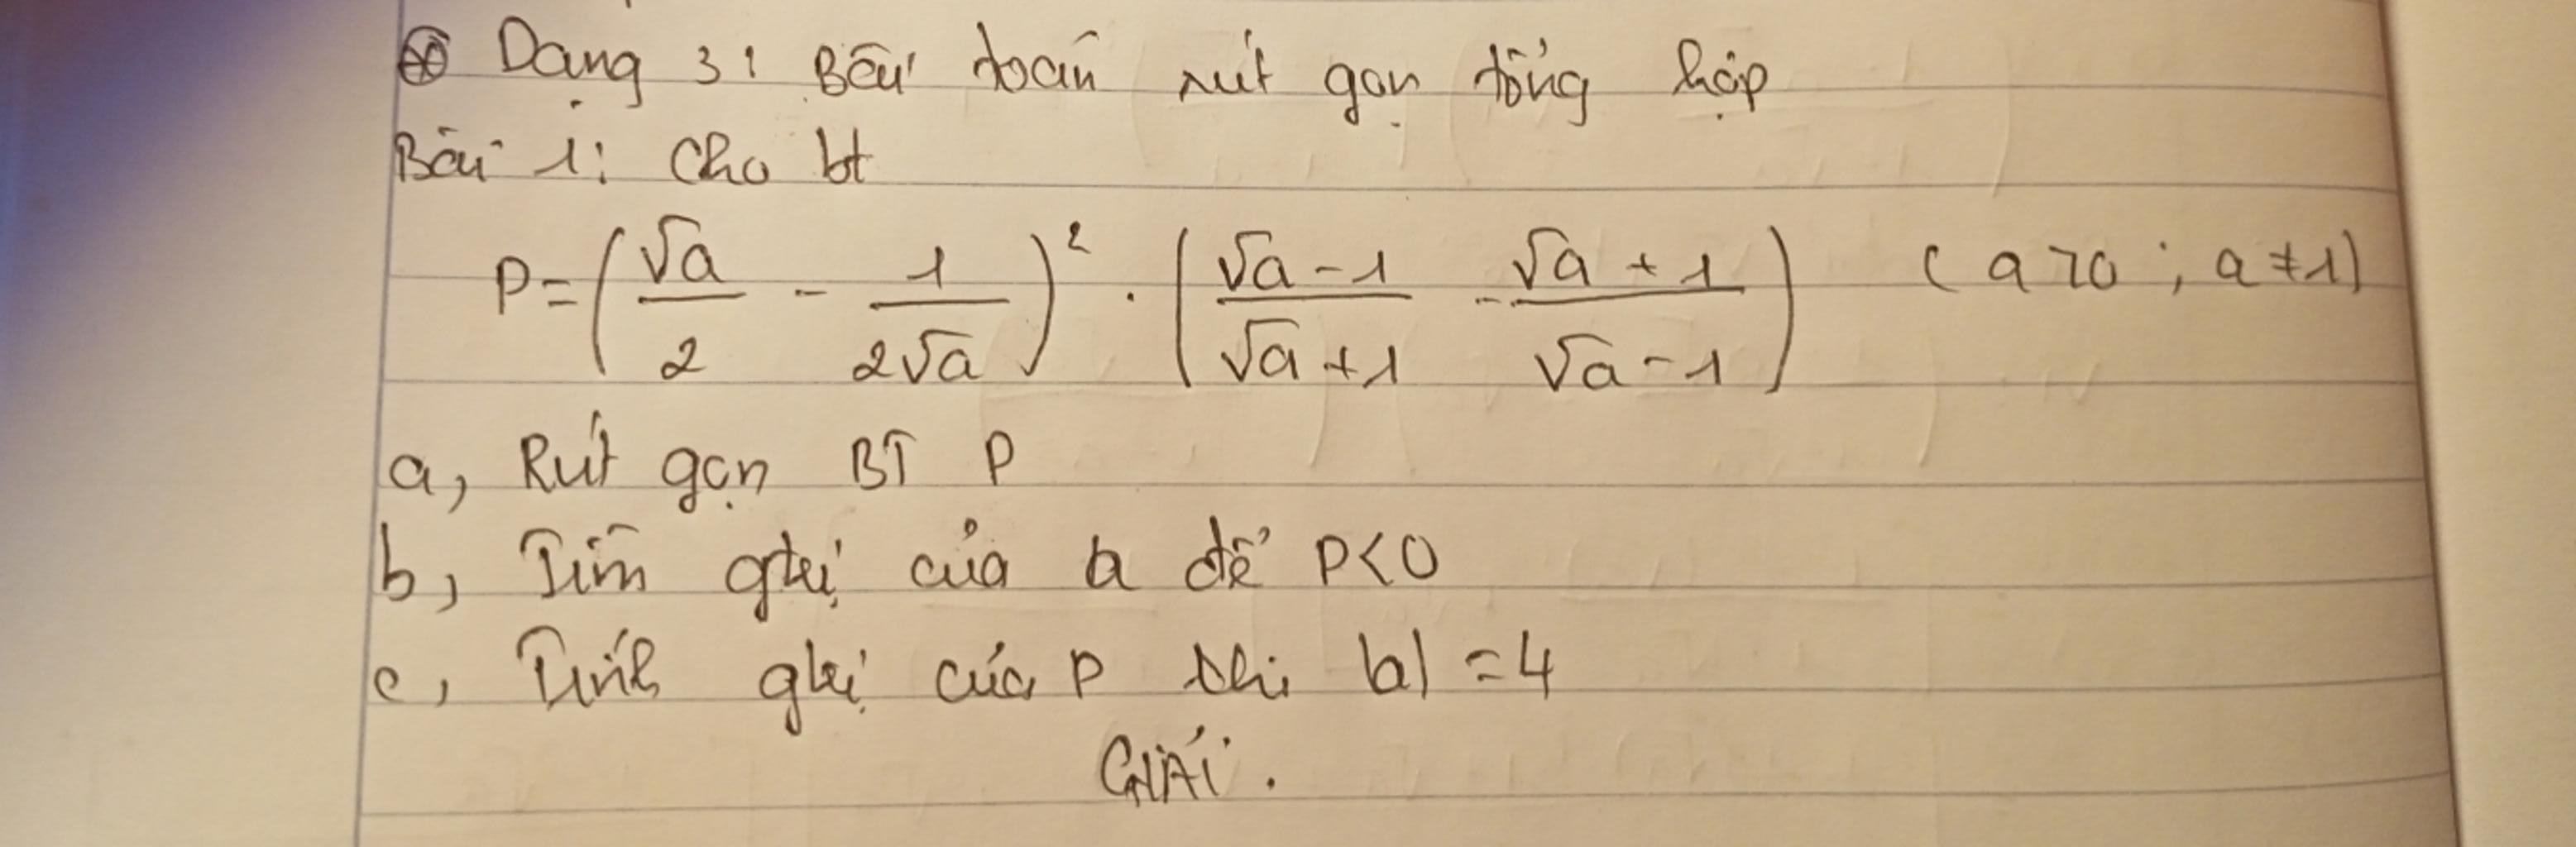 ⊛ Dạng 3: Bài toán rút gọn tổng hợp
Bài 1: Cho bt
P = (√a/2 - 1/(2√a))² . ((√a - 1)/(√a + 1) - (√a + 1)/(√a - 1)) (a > 0 ; a ≠ 1)
a, Rút gọn BT P
b, Tìm gtrị của a để P < 0
c, Tính gtrị của P khi |a| = 4
GIẢI.